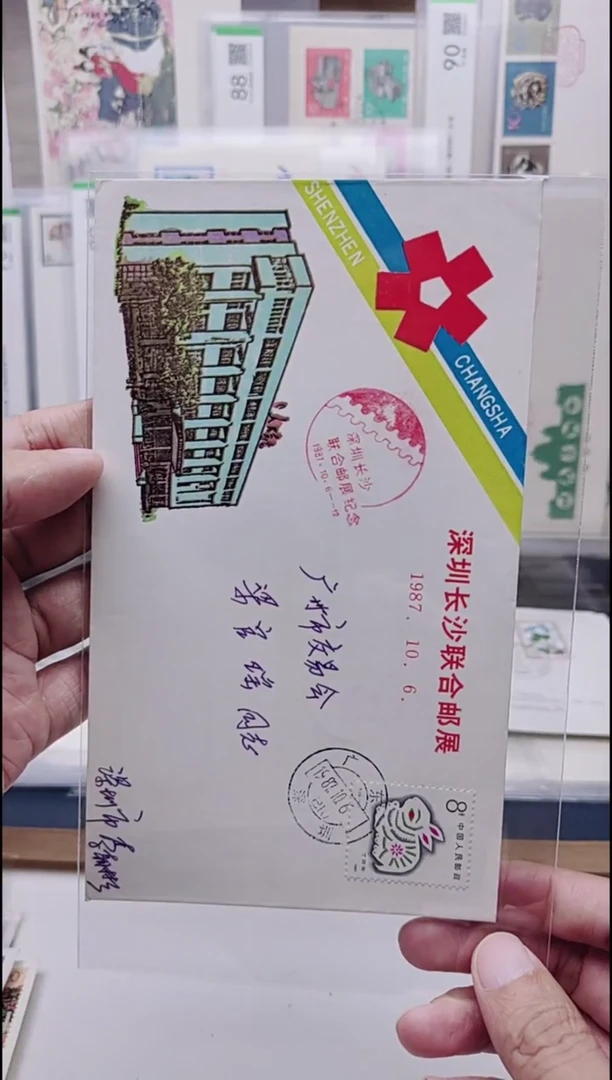 SHENZHEN
CHANGSHA
深圳长沙联合邮展
1987.10.6.
深圳长沙
联合邮展纪念
1987.10.6
广州市交易会
同志
深圳市
8分
中国人民邮政
1987.10.6
广东
深圳
88
06